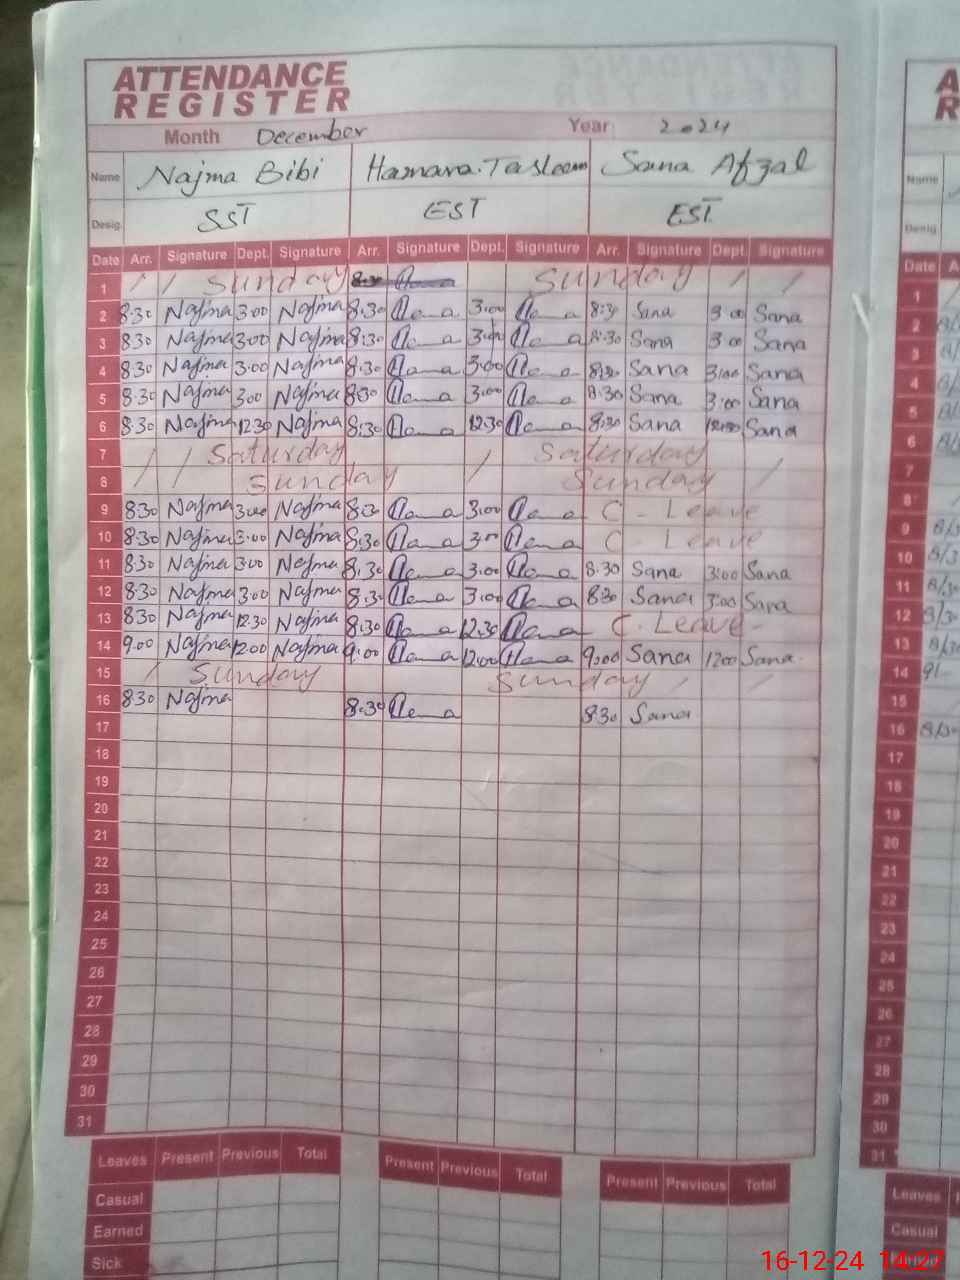 ATTENDANCE
REGISTER
Month December Year 2024
Name Najma Bibi Hamara.Tasleem Sana Afzal
Desig. SST EST EST
Date Arr. Signature Dept. Signature Arr. Signature Dept. Signature Arr. Signature Dept. Signature
1 Sunday 8:30 Sunday
2 8:30 Najma 3:00 Najma 8:30 3:00 8:30 Sana 3:00 Sana
3 8:30 Najma 3:00 Najma 8:30 3:00 8:30 Sana 3:00 Sana
4 8:30 Najma 3:00 Najma 8:30 3:00 8:30 Sana 3:00 Sana
5 8:30 Najma 3:00 Najma 8:30 3:00 8:30 Sana 3:00 Sana
6 8:30 Najma 12:30 Najma 8:30 12:30 8:30 Sana 12:30 Sana
7 Saturday Saturday
8 Sunday Sunday
9 8:30 Najma 3:00 Najma 8:30 3:00 C - Leave
10 8:30 Najma 3:00 Najma 8:30 3:00 C Leave
11 8:30 Najma 3:00 Najma 8:30 3:00 8:30 Sana 3:00 Sana
12 8:30 Najma 3:00 Najma 8:30 3:00 8:30 Sana 3:00 Sana
13 8:30 Najma 12:30 Najma 8:30 12:30 C. Leave -
14 9:00 Najma 12:00 Najma 9:00 12:00 9:00 Sana 12:00 Sana.
15 Sunday Sunday
16 8:30 Najma 8:30 8:30 Sana
17
18
19
20
21
22
23
24
25
26
27
28
29
30
31
Leaves Present Previous Total Present Previous Total Present Previous Total
Casual
Earned
Sick
Name
Desig.
Date A
1
2
3
4
5
6
7
8
9
10
11
12
13
14
15
16
17
18
19
20
21
22
23
24
25
26
27
28
29
30
31
Leaves
Casual
16-12-24 14:27